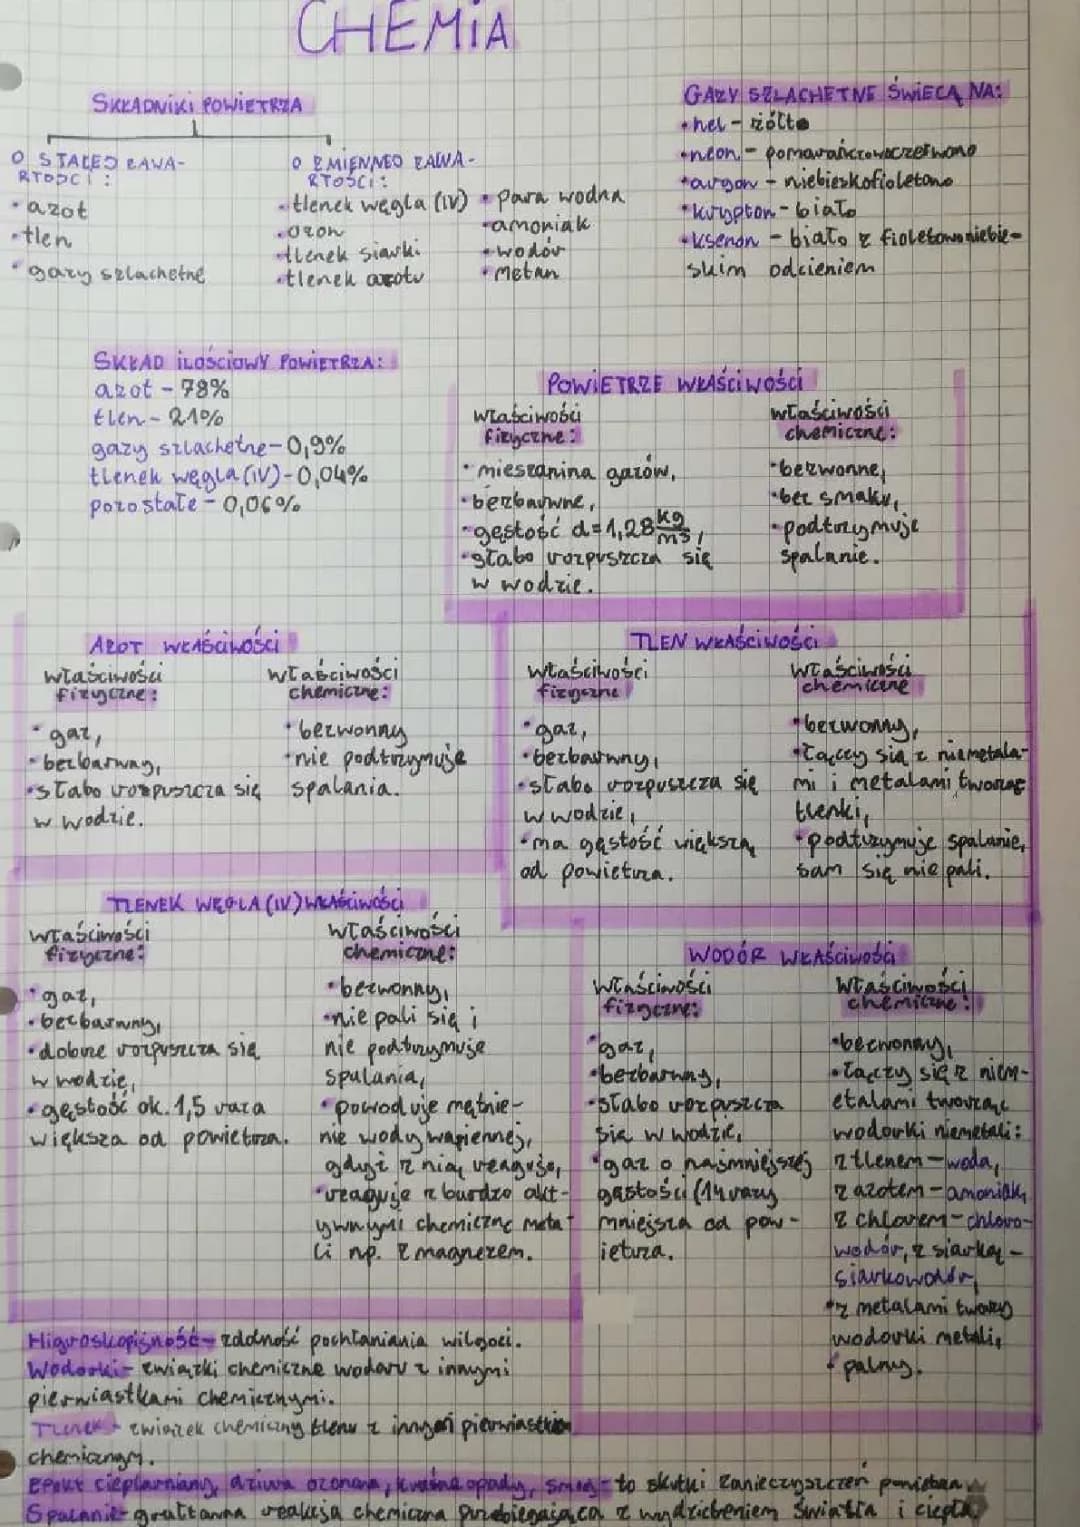 CHEMIA
SKŁADNIKI POWIETRZA
O STAŁEJ ZAWA-
RTOŚCI:
• azot
• tlen
• gazy szlachetne
O ZMIENNEJ ZAWA-
RTOŚCI:
• tlenek węgla (IV)
• ozon
• tlenek siarki
• tlenek azotu
• para wodna
• amoniak
• wodór
• metan
GAZY SZLACHETNE ŚWIECĄ NA:
• hel - żółto
• neon - pomarańczowoczerwono
• argon - niebieskofioletowo
• krypton - biało
• ksenon - biało z fioletowoniebie-
skim odcieniem
SKŁAD ILOŚCIOWY POWIETRZA:
azot - 78%
tlen - 21%
gazy szlachetne - 0,9%
tlenek węgla (IV) - 0,04%
pozostałe - 0,06%
POWIETRZE WŁAŚCIWOŚCI
właściwości
fizyczne:
• mieszanina gazów,
• bezbarwne,
• gęstość d=1,28 kg/m3,
• słabo rozpuszcza się
w wodzie.
właściwości
chemiczne:
• bezwonne,
• bez smaku,
• podtrzymuje
spalanie.
AZOT WŁAŚCIWOŚCI
właściwości
fizyczne:
• gaz,
• bezbarwny,
• słabo rozpuszcza się
w wodzie.
właściwości
chemiczne:
• bezwonny
• nie podtrzymuje
spalania.
TLEN WŁAŚCIWOŚCI
właściwości
fizyczne
• gaz,
• bezbarwny,
• słabo rozpuszcza się
w wodzie,
• ma gęstość większą
od powietrza.
właściwości
chemiczne
• bezwonny,
• łączy się z niemetala-
mi i metalami tworząc
tlenki,
• podtrzymuje spalanie,
sam się nie pali.
TLENEK WĘGLA (IV) WŁAŚCIWOŚCI
właściwości
fizyczne:
• gaz,
• bezbarwny,
• dobrze rozpuszcza się
w wodzie,
• gęstość ok. 1,5 raza
większa od powietrza.
właściwości
chemiczne:
• bezwonny,
• nie pali się i
nie podtrzymuje
spalania,
• powoduje mętnie-
nie wody wapiennej,
gdyż z nią reaguje,
• reaguje z bardzo akt-
ywnymi chemiczne meta-
li np. z magnezem.
WODÓR WŁAŚCIWOŚCI
właściwości
fizyczne:
• gaz,
• bezbarwny,
• słabo rozpuszcza
się w wodzie,
• gaz o najmniejszej
gęstości (14 razy
mniejsza od pow-
ietrza.
właściwości
chemiczne:
• bezwonny,
• łączy się z niem-
etalami tworząc
wodorki niemetali:
z tlenem - woda,
z azotem - amoniak,
z chlorem - chloro-
wodór, z siarką -
siarkowodór,
• z metalami tworzy
wodorki metali,
• palny.
Higroskopijność - zdolność pochłaniania wilgoci.
Wodorki - związki chemiczne wodoru z innymi
pierwiastkami chemicznymi.
Tlenek - związek chemiczny tlenu z innym pierwiastkiem
chemicznym.
Efekt cieplarniany, dziura ozonowa, kwaśne opady, smog - to skutki zanieczyszczeń powietrza.
Spalanie - gwałtowna reakcja chemiczna przebiegająca z wydzieleniem światła i ciepła.